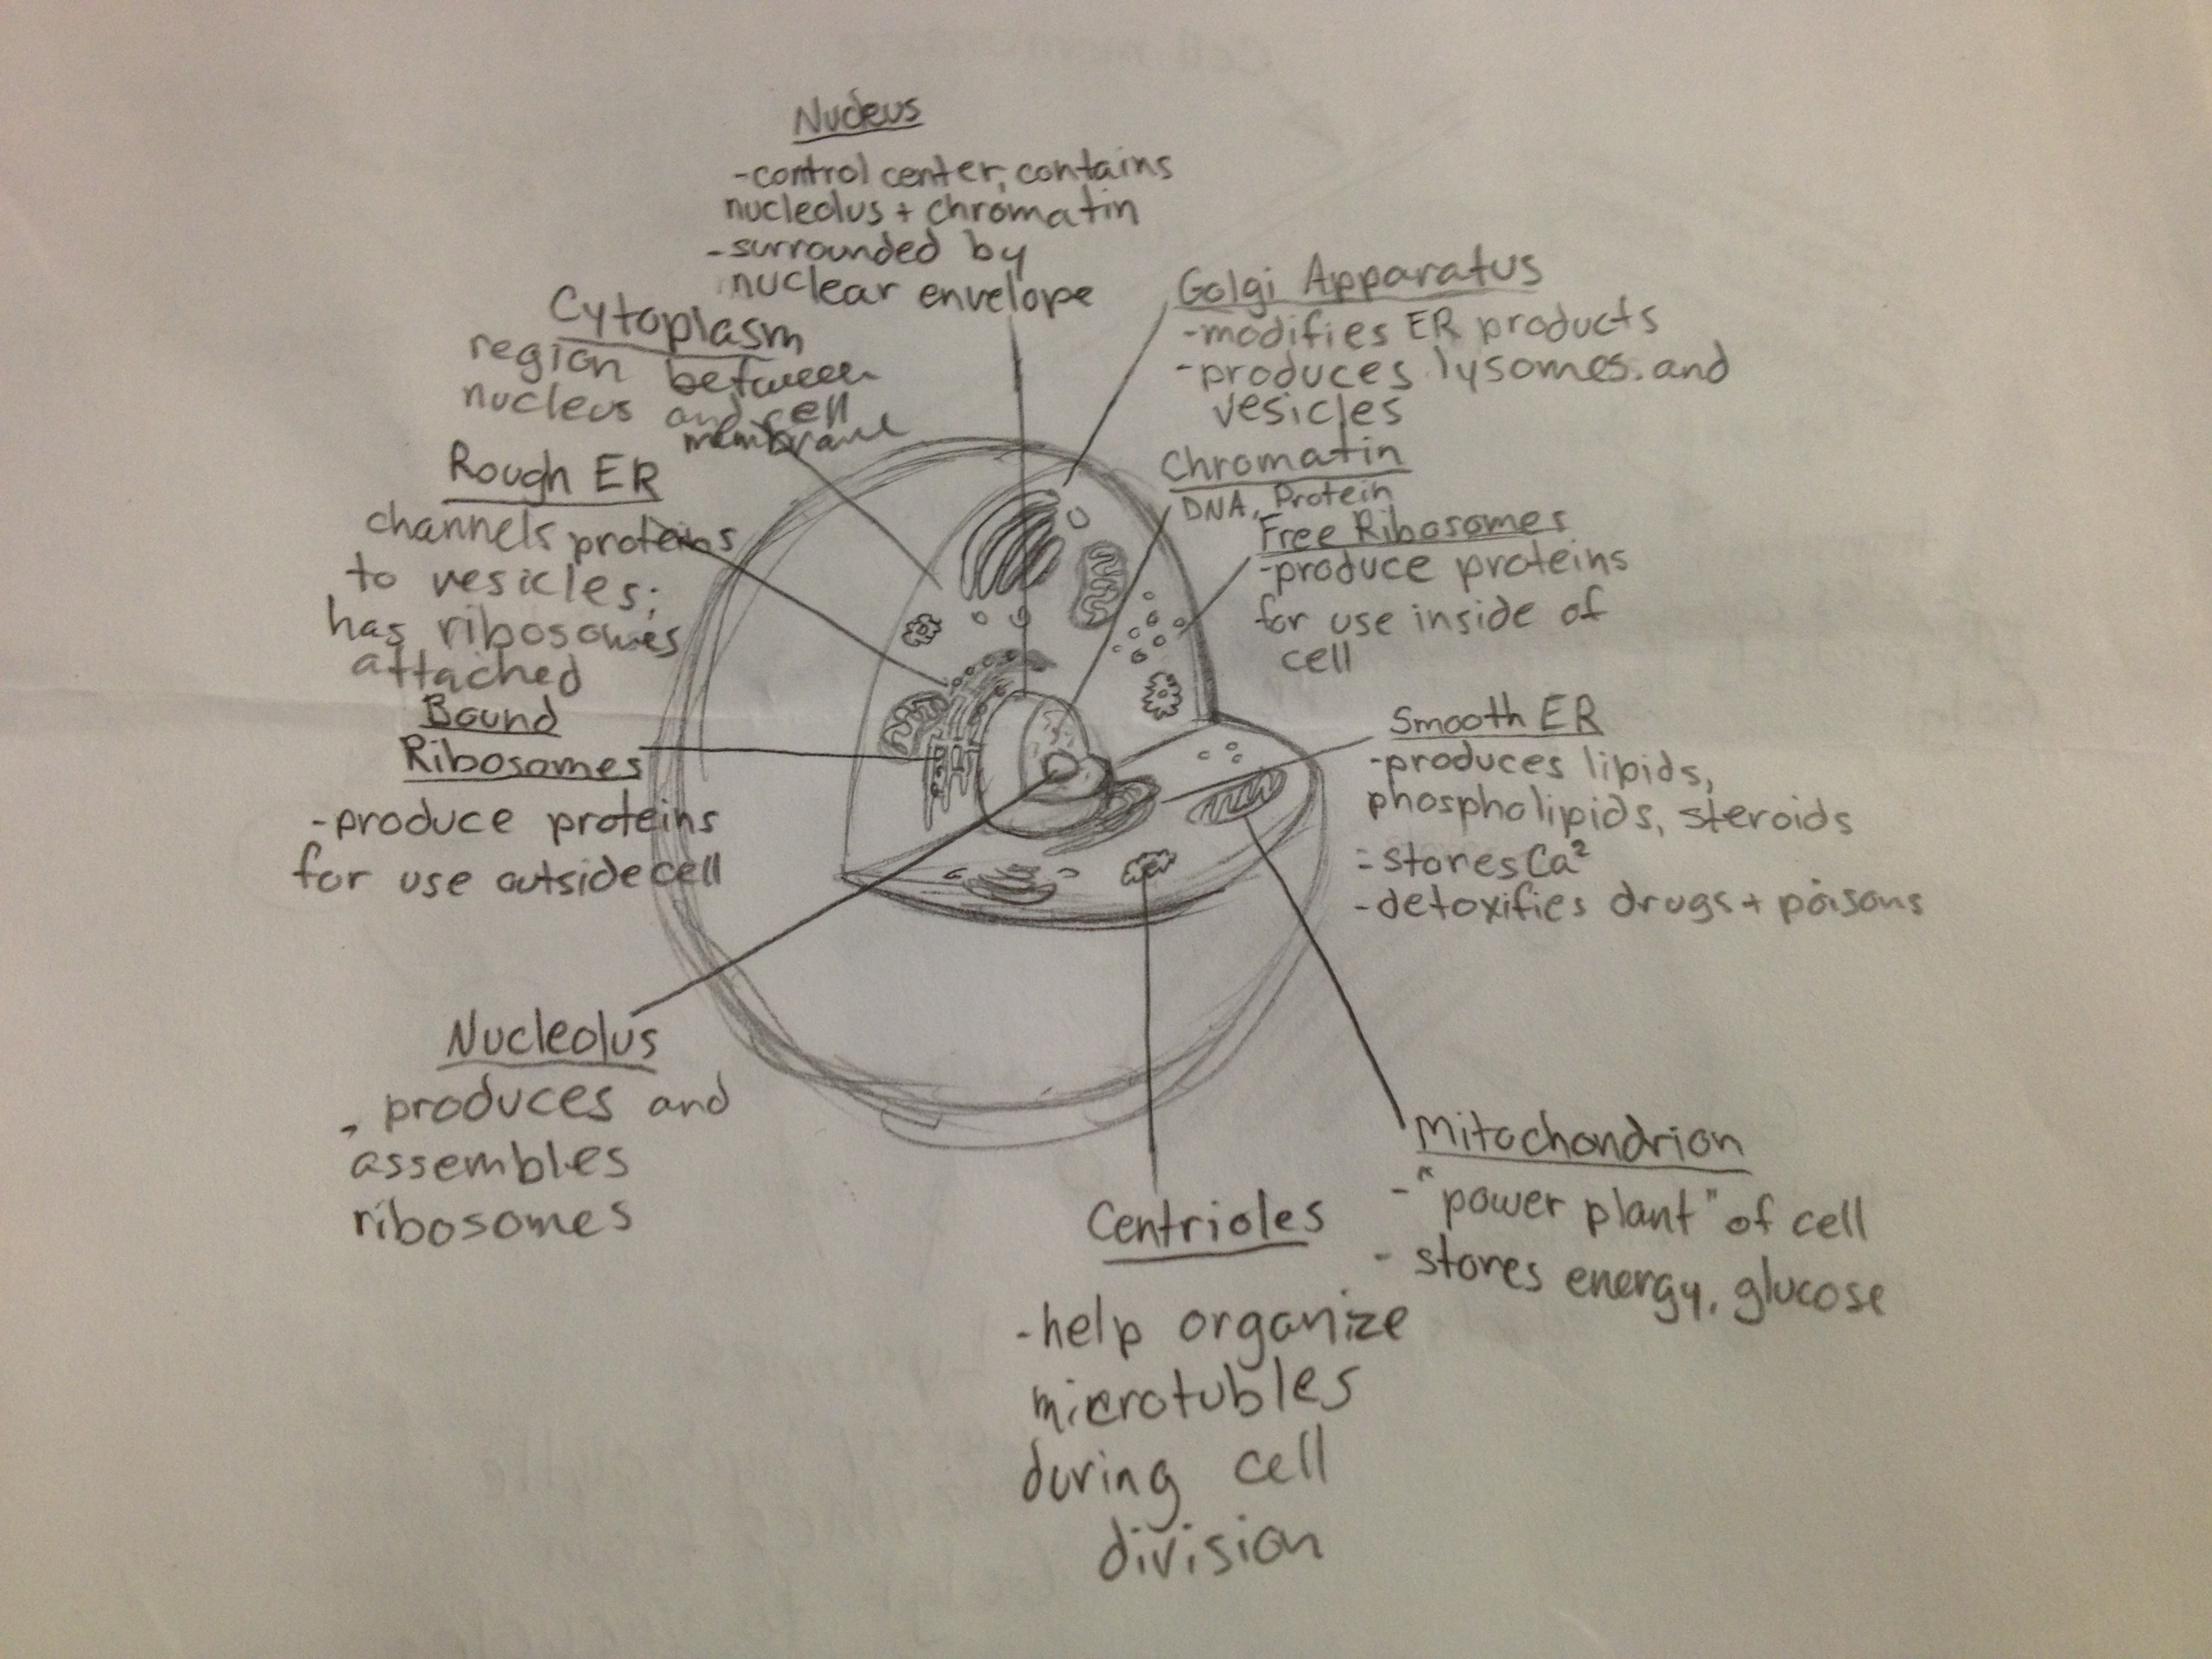 Nucleus
-control center, contains
nucleolus + chromatin
-surrounded by
nuclear envelope
Cytoplasm
region between
nucleus and cell
membrane
Rough ER
channels proteins
to vesicles;
has ribosomes
attached
Bound
Ribosomes
-produce proteins
for use outside cell
Nucleolus
- produces and
assembles
ribosomes
Golgi Apparatus
-modifies ER products
-produces lysomes and
vesicles
Chromatin
DNA, Protein
Free Ribosomes
-produce proteins
for use inside of
cell
Smooth ER
-produces lipids,
phospholipids, steroids
-stores Ca²
-detoxifies drugs + poisons
Mitochondrion
- "power plant" of cell
- stores energy, glucose
Centrioles
-help organize
microtubles
during cell
division